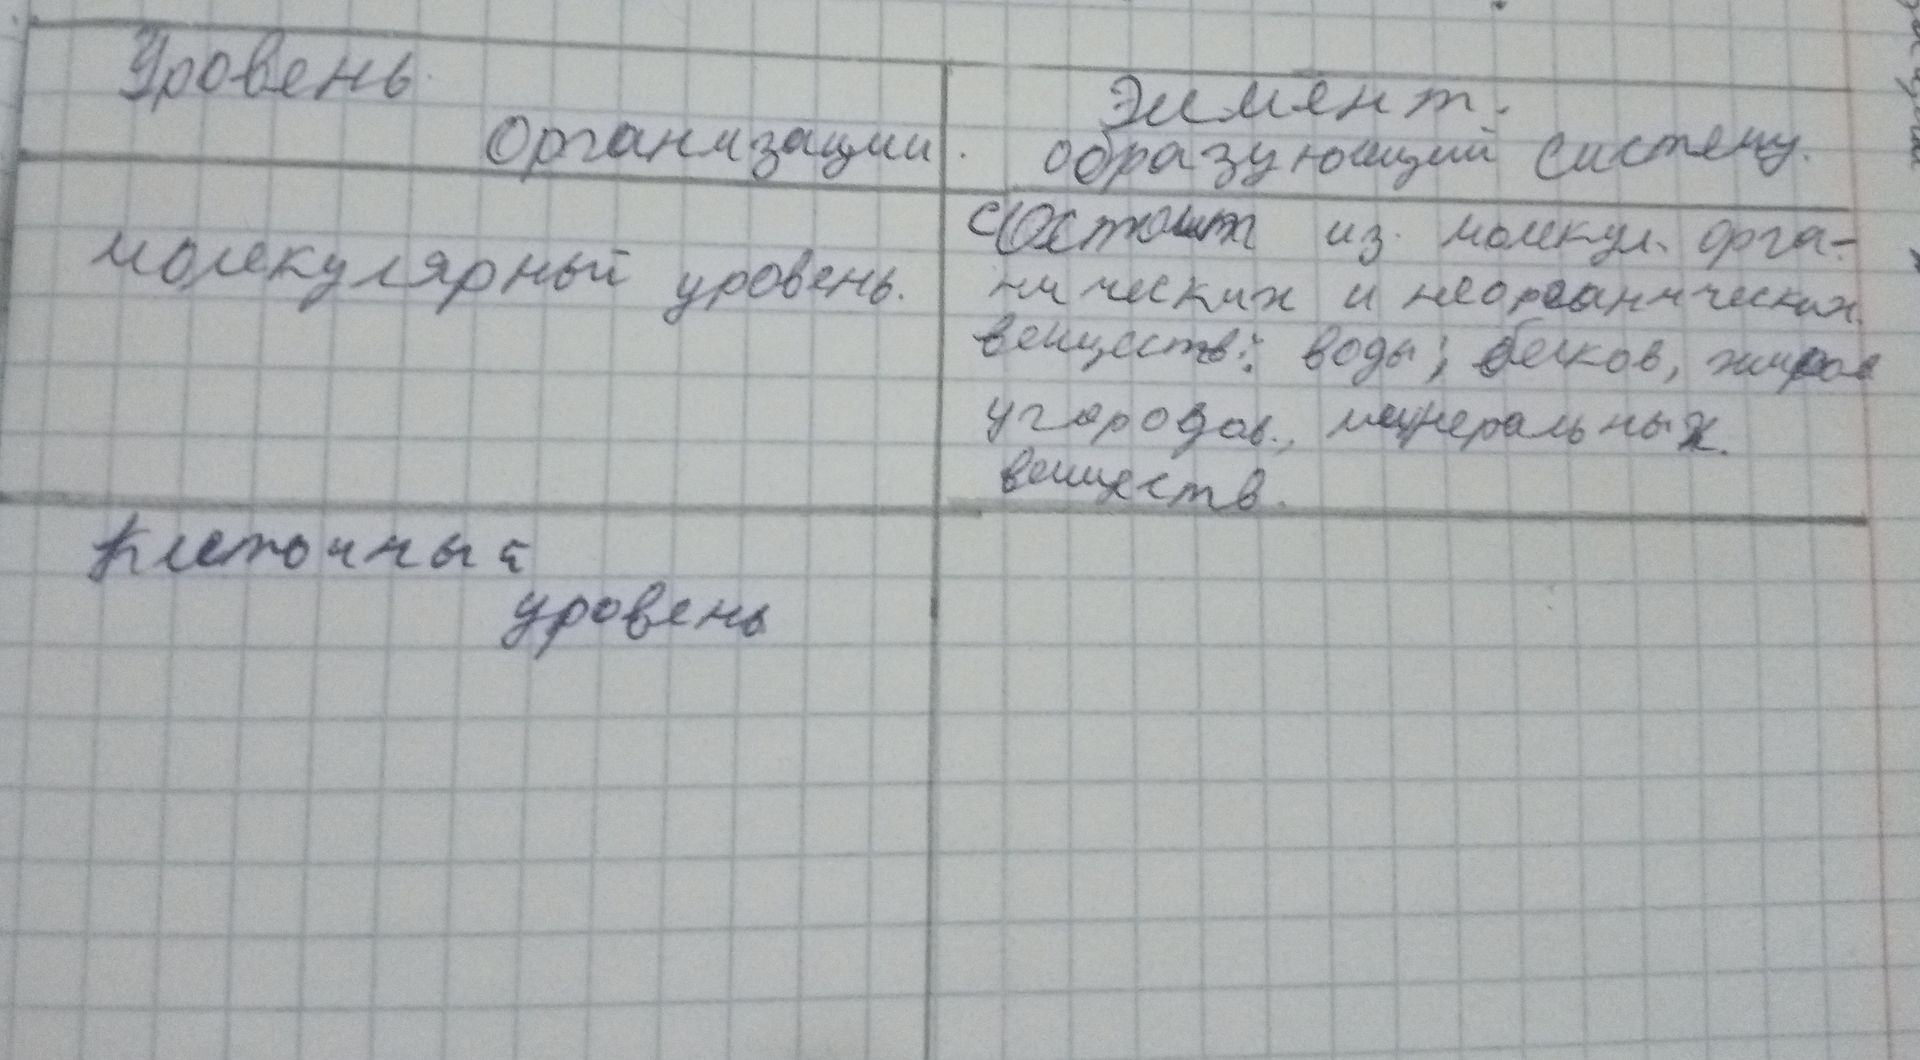 Уровень
организации.
Элемент.
образующий систему.
молекулярный уровень.
состоит из молекул орга-
нических и неорганических.
веществ: воды; белков, жиров
угеродов., минеральных.
веществ.
Клеточный
уровень